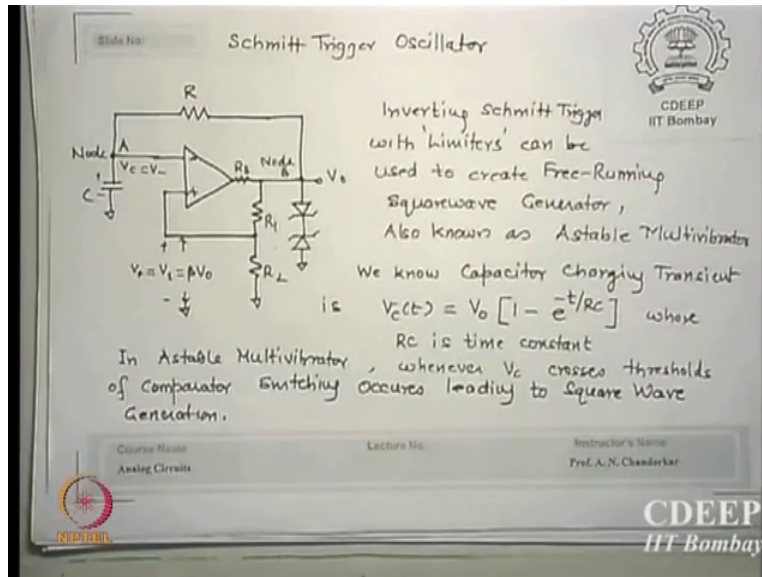 Slide No:
Schmitt Trigger Oscillator
CDEEP
IIT Bombay
R
Node A
Vc = V-
C
+
-
Node B
Vo
R1
R2
V+ = V1 = βVo
Inverting Schmitt Trigger
with 'Limiters' can be
used to create Free-Running
Squarewave Generator,
Also known as Astable Multivibrator
We know Capacitor Charging Transient
is Vc(t) = Vo [1 - e^-t/RC] where
RC is time constant
In Astable Multivibrator, whenever Vc crosses thresholds
of Comparator Switching occures leading to Square Wave
Generation.
Course Name
Analog Circuits
Lecture No.
Instructor's Name
Prof. A. N. Chandorkar
NPTEL
CDEEP
IIT Bombay